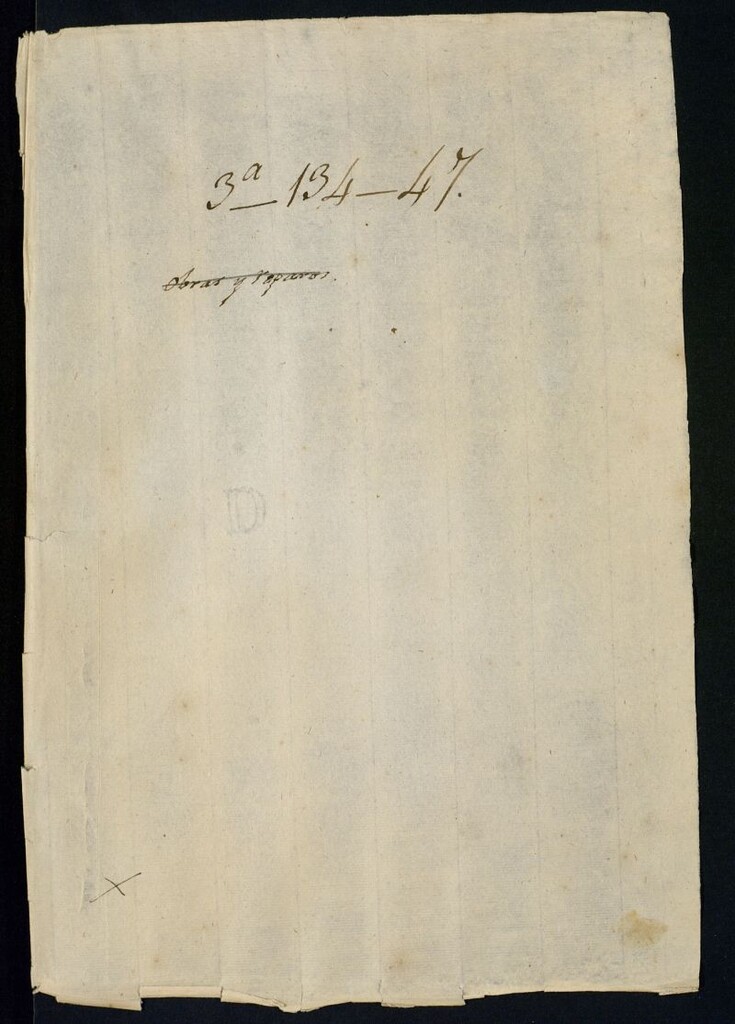 3ª — 134 — 47.
Obras y reparos.
D
X